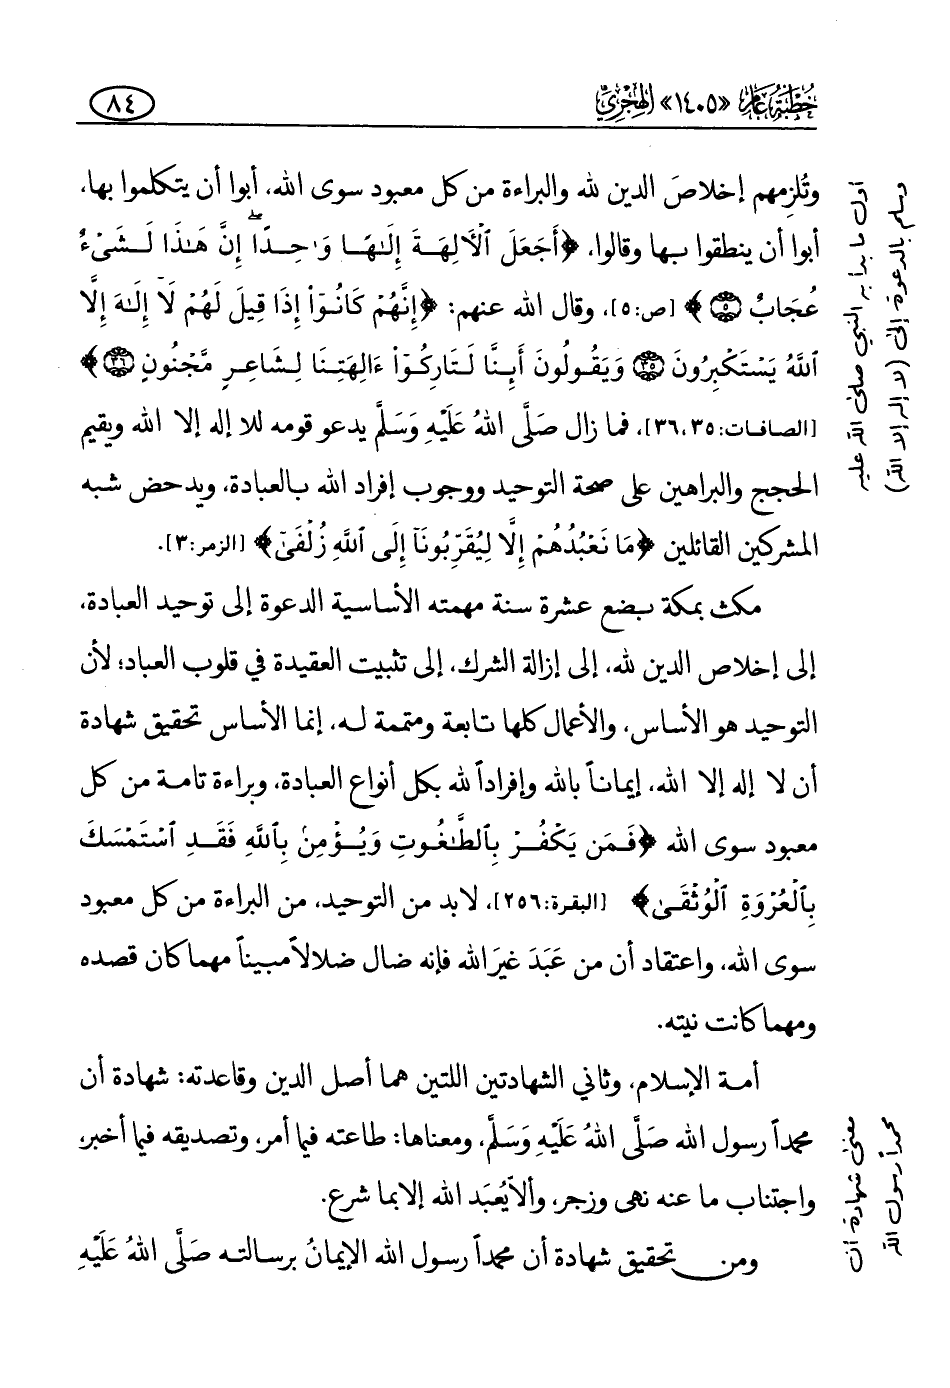 خُطْبَةُ عَامِ «١٤٠٥» الهِجْرِي
٨٤
وتُلزِمهم إخلاصَ الدين لله والبراءة من كل معبود سوى الله، أبوا أن يتكلموا بها،
أبوا أن ينطقوا بها وقالوا، ﴿أَجَعَلَ ٱلْآلِهَةَ إِلَٰهًا وَٰحِدًاۖ إِنَّ هَٰذَا لَشَىْءٌ
عُجَابٌ ۝٥﴾ [ص:٥]، وقال الله عنهم: ﴿إِنَّهُمْ كَانُوٓاْ إِذَا قِيلَ لَهُمْ لَآ إِلَٰهَ إِلَّا
ٱللَّهُ يَسْتَكْبِرُونَ ۝٣٥ وَيَقُولُونَ أَئِنَّا لَتَارِكُوٓاْ ءَالِهَتِنَا لِشَاعِرٍ مَّجْنُونٍ ۝٣٦﴾
[الصافات:٣٦،٣٥]، فما زال صَلَّى اللهُ عَلَيْهِ وَسَلَّم يدعو قومه للا إله إلا الله ويقيم
الحجج والبراهين على صحة التوحيد ووجوب إفراد الله بالعبادة، ويدحض شبه
المشركين القائلين ﴿مَا نَعْبُدُهُمْ إِلَّا لِيُقَرِّبُونَآ إِلَى ٱللَّهِ زُلْفَىٰٓ﴾ [الزمر:٣].
مكث بمكة بضع عشرة سنة مهمته الأساسية الدعوة إلى توحيد العبادة،
إلى إخلاص الدين لله، إلى إزالة الشرك، إلى تثبيت العقيدة في قلوب العباد؛ لأن
التوحيد هو الأساس، والأعمال كلها تابعة ومتممة له، إنما الأساس تحقيق شهادة
أن لا إله إلا الله، إيماناً بالله وإفراداً لله بكل أنواع العبادة، وبراءة تامة من كل
معبود سوى الله ﴿فَمَن يَكْفُرْ بِٱلطَّٰغُوتِ وَيُؤْمِنۢ بِٱللَّهِ فَقَدِ ٱسْتَمْسَكَ
بِٱلْعُرْوَةِ ٱلْوُثْقَىٰ﴾ [البقرة:٢٥٦]، لابد من التوحيد، من البراءة من كل معبود
سوى الله، واعتقاد أن من عَبَدَ غيَرَ الله فإنه ضال ضلالاً مبيناً مهما كان قصده
ومهما كانت نيته.
أمة الإسلام، وثاني الشهادتين اللتين هما أصل الدين وقاعدته: شهادة أن
محمداً رسول الله صَلَّى اللهُ عَلَيْهِ وَسَلَّم، ومعناها: طاعته فيما أمر، وتصديقه فيما أخبر،
واجتناب ما عنه نهى وزجر، وألاّ يُعبَد الله إلا بما شرع.
ومن تحقيق شهادة أن محمداً رسول الله الإيمانُ برسالته صَلَّى اللهُ عَلَيْهِ
أول ما بدأ به النبي صلى الله عليه
وسلم بالدعوة إلى (لا إله إلا الله)
معنى شهادة أن
محمداً رسول الله